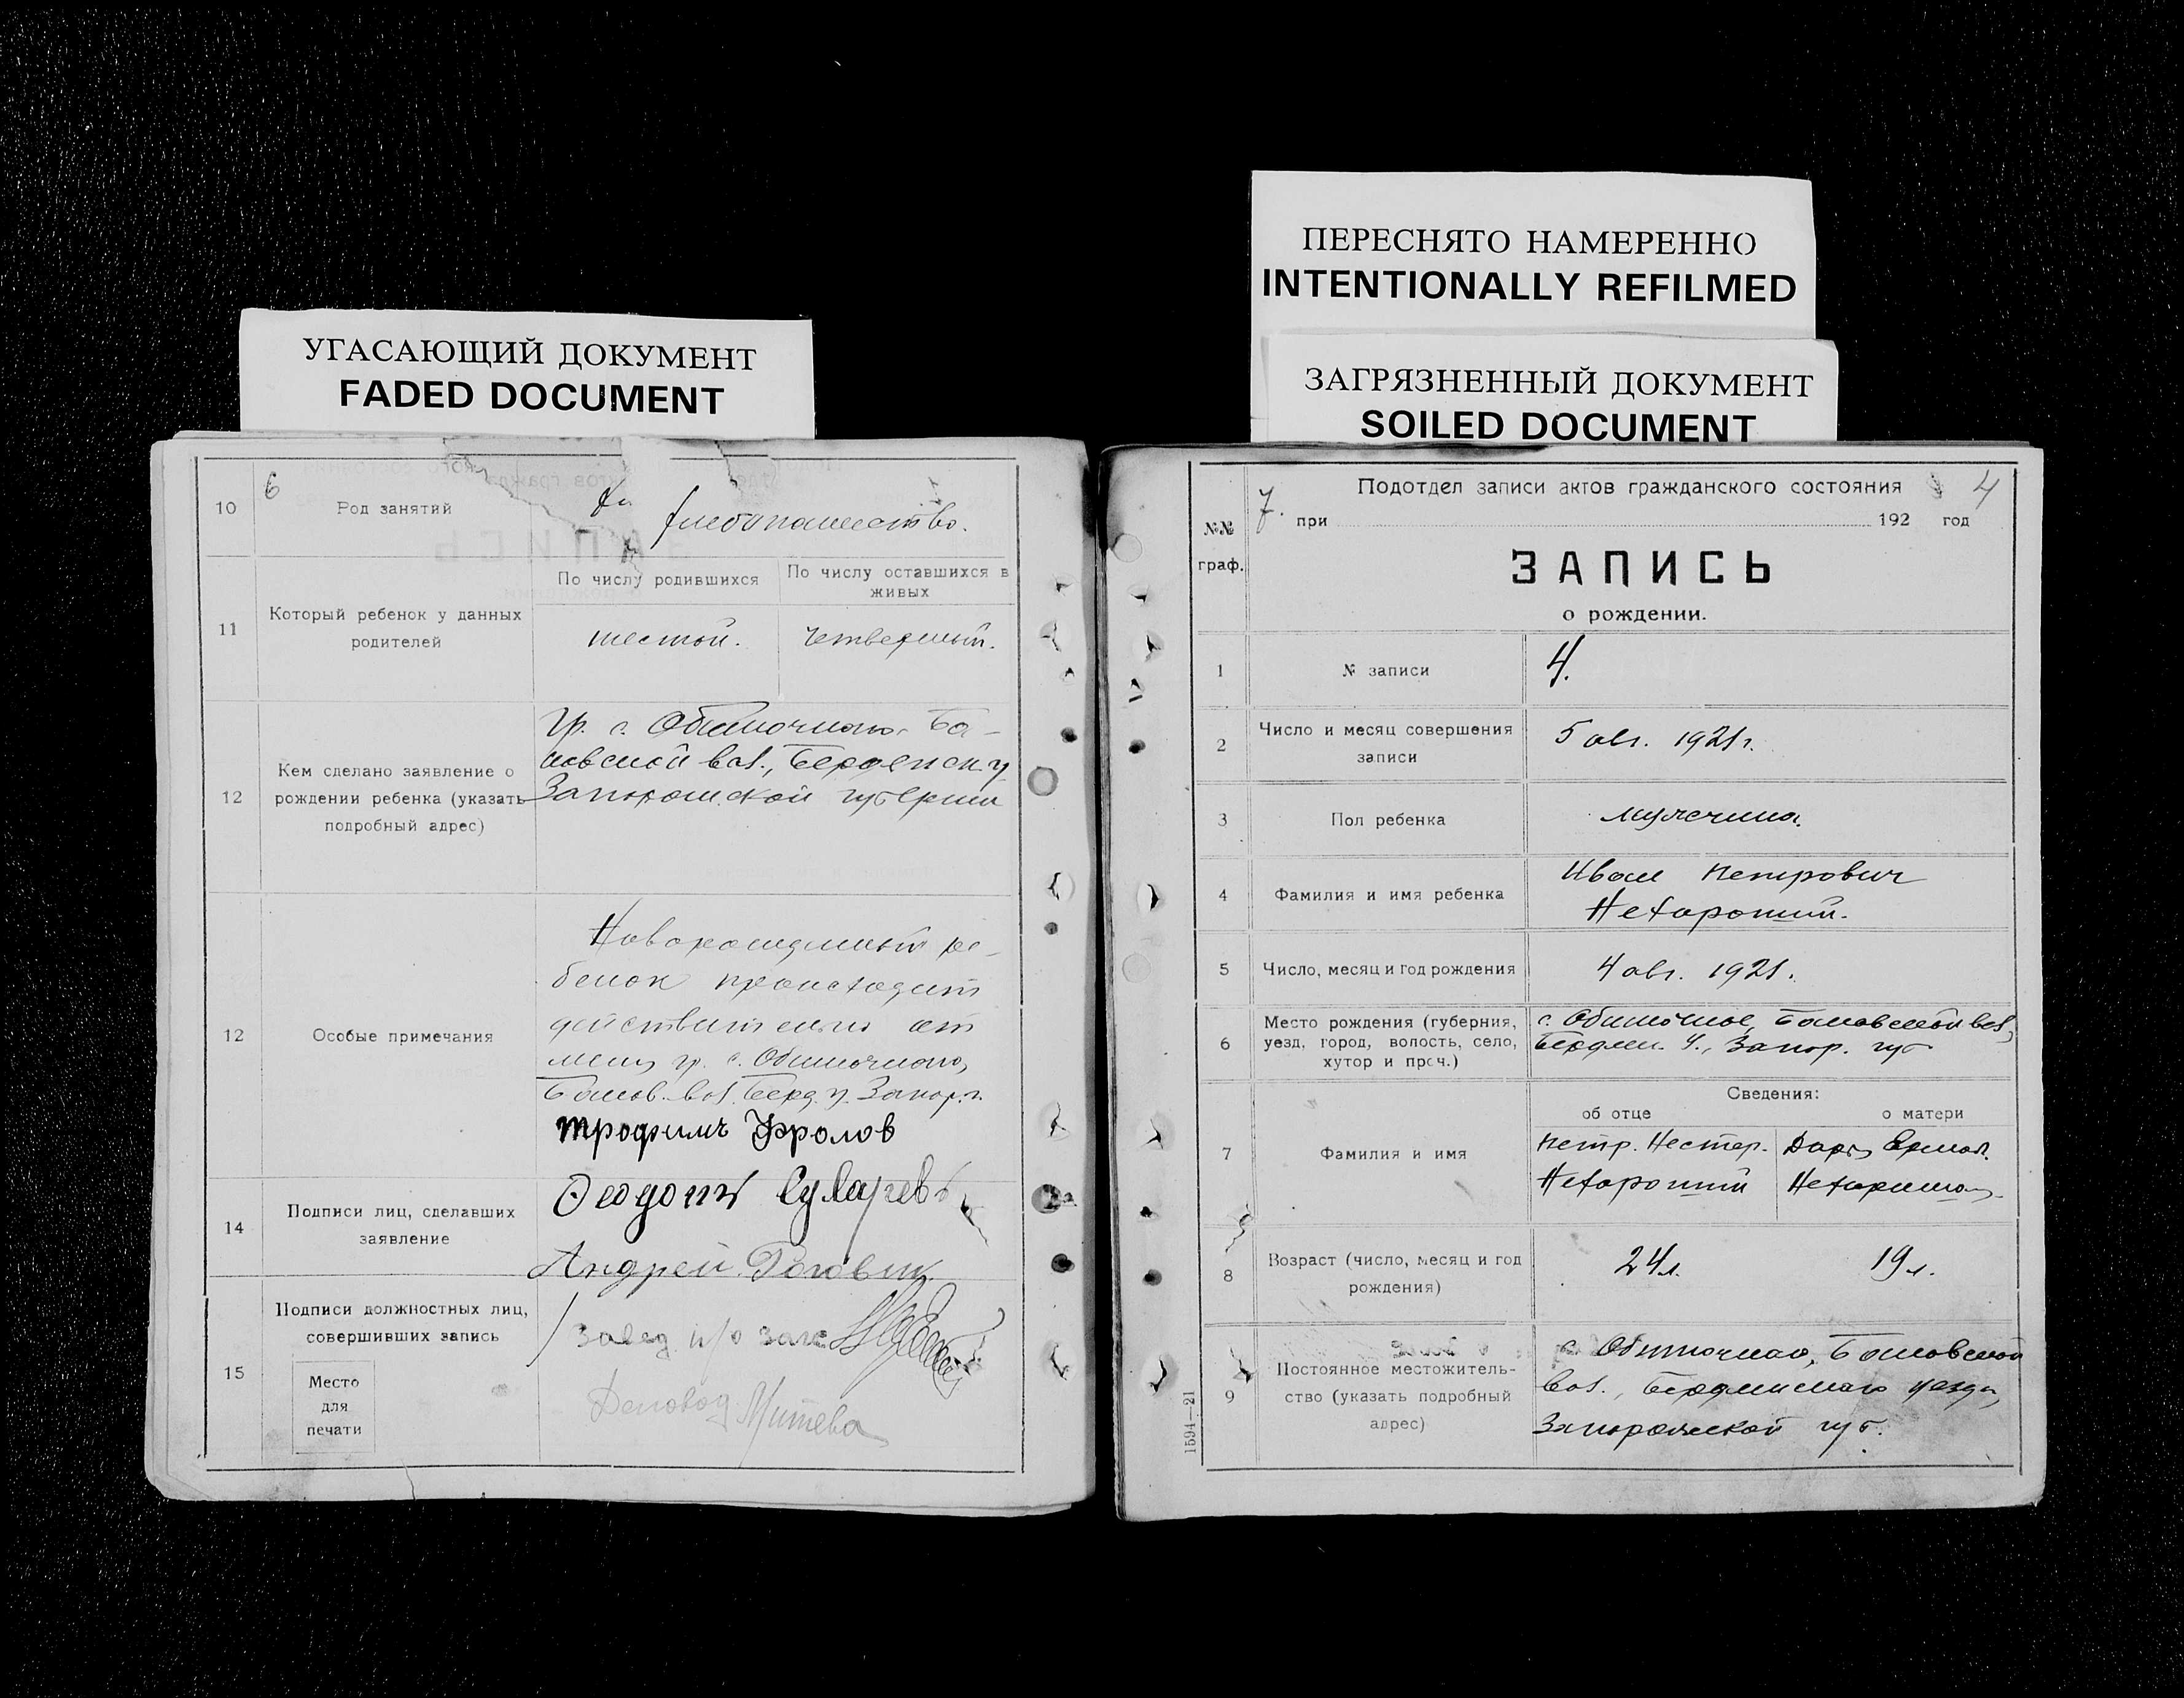 УГАСАЮЩИЙ ДОКУМЕНТ
FADED DOCUMENT
6
10
Род занятий
хлебопашество.
11
Который ребенок у данных
родителей
По числу родившихся
По числу оставшихся в
живых
шестой.
четвертый.
12
Кем сделано заявление о
рождении ребенка (указать
подробный адрес)
гр. с. Обиточного, Ба-
новской вол., Бердянск. у.
Запорожской губернии
12
Особые примечания
Новорожденный ре-
бенок происходит
действительно от
меня гр. с. Обиточного,
Банов. вол. Берд. у. Запор. г.
Трофимъ Фролов
14
Подписи лиц, сделавших
заявление
Феодотъ Сухаревъ
Андрей
15
Подписи должностных лиц,
совершивших запись
Место
для
печати
Завед. п/о
Деловод Митева
ПЕРЕСНЯТО НАМЕРЕННО
INTENTIONALLY REFILMED
ЗАГРЯЗНЕННЫЙ ДОКУМЕНТ
SOILED DOCUMENT
7.
4
№№
граф.
Подотдел записи актов гражданского состояния
при 192 год
ЗАПИСЬ
о рождении.
1
№ записи
4.
2
Число и месяц совершения
записи
5 авг. 1921 г.
3
Пол ребенка
мужчина.
4
Фамилия и имя ребенка
Иван Петрович
Нехороший.
5
Число, месяц и год рождения
4 авг. 1921.
6
Место рождения (губерния,
уезд, город, волость, село,
хутор и проч.)
с. Обиточное, Бановской вол,
Бердян. у., Запор. губ
Сведения:
об отце
о матери
7
Фамилия и имя
Петр. Нестер.
Нехороший
Дарья Ермол.
Нехорошая.
8
Возраст (число, месяц и год
рождения)
24 л.
19 л.
9
Постоянное местожитель-
ство (указать подробный
адрес)
с. Обиточное, Бановской
вол., Бердянского уезда,
Запорожской губ.
1594—21